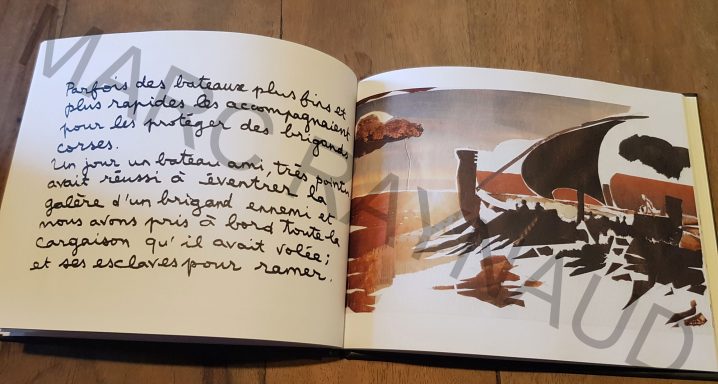 MARC RAYNAUD
Parfois des bateaux plus fins et
plus rapides les accompagnaient
pour les protéger des brigands
corses.
Un jour un bateau ami, très pointu,
avait réussi à éventrer la
galère d'un brigand ennemi et
nous avons pris à bord toute la
cargaison qu'il avait volée ;
et ses esclaves pour ramer.